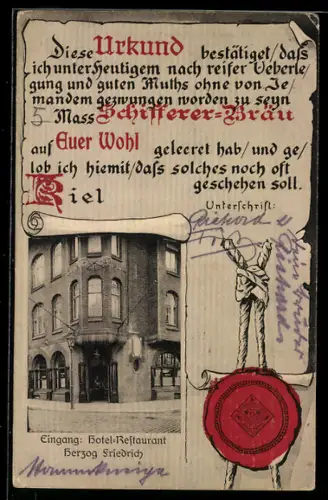 Diese Urkund bestätiget/daß
ich unter Heutigem nach reifer Ueberle-
gung und guten Muths ohne von Je-
mandem gezwungen worden zu seyn
5 Mass Schifferer-Bräu
auf Euer Wohl geleeret hab/und ge-
lob ich hiemit/daß solches noch oft
Kiel geschehen soll.
Unterschrift:
Eingang: Hotel-Restaurant
Herzog Friedrich